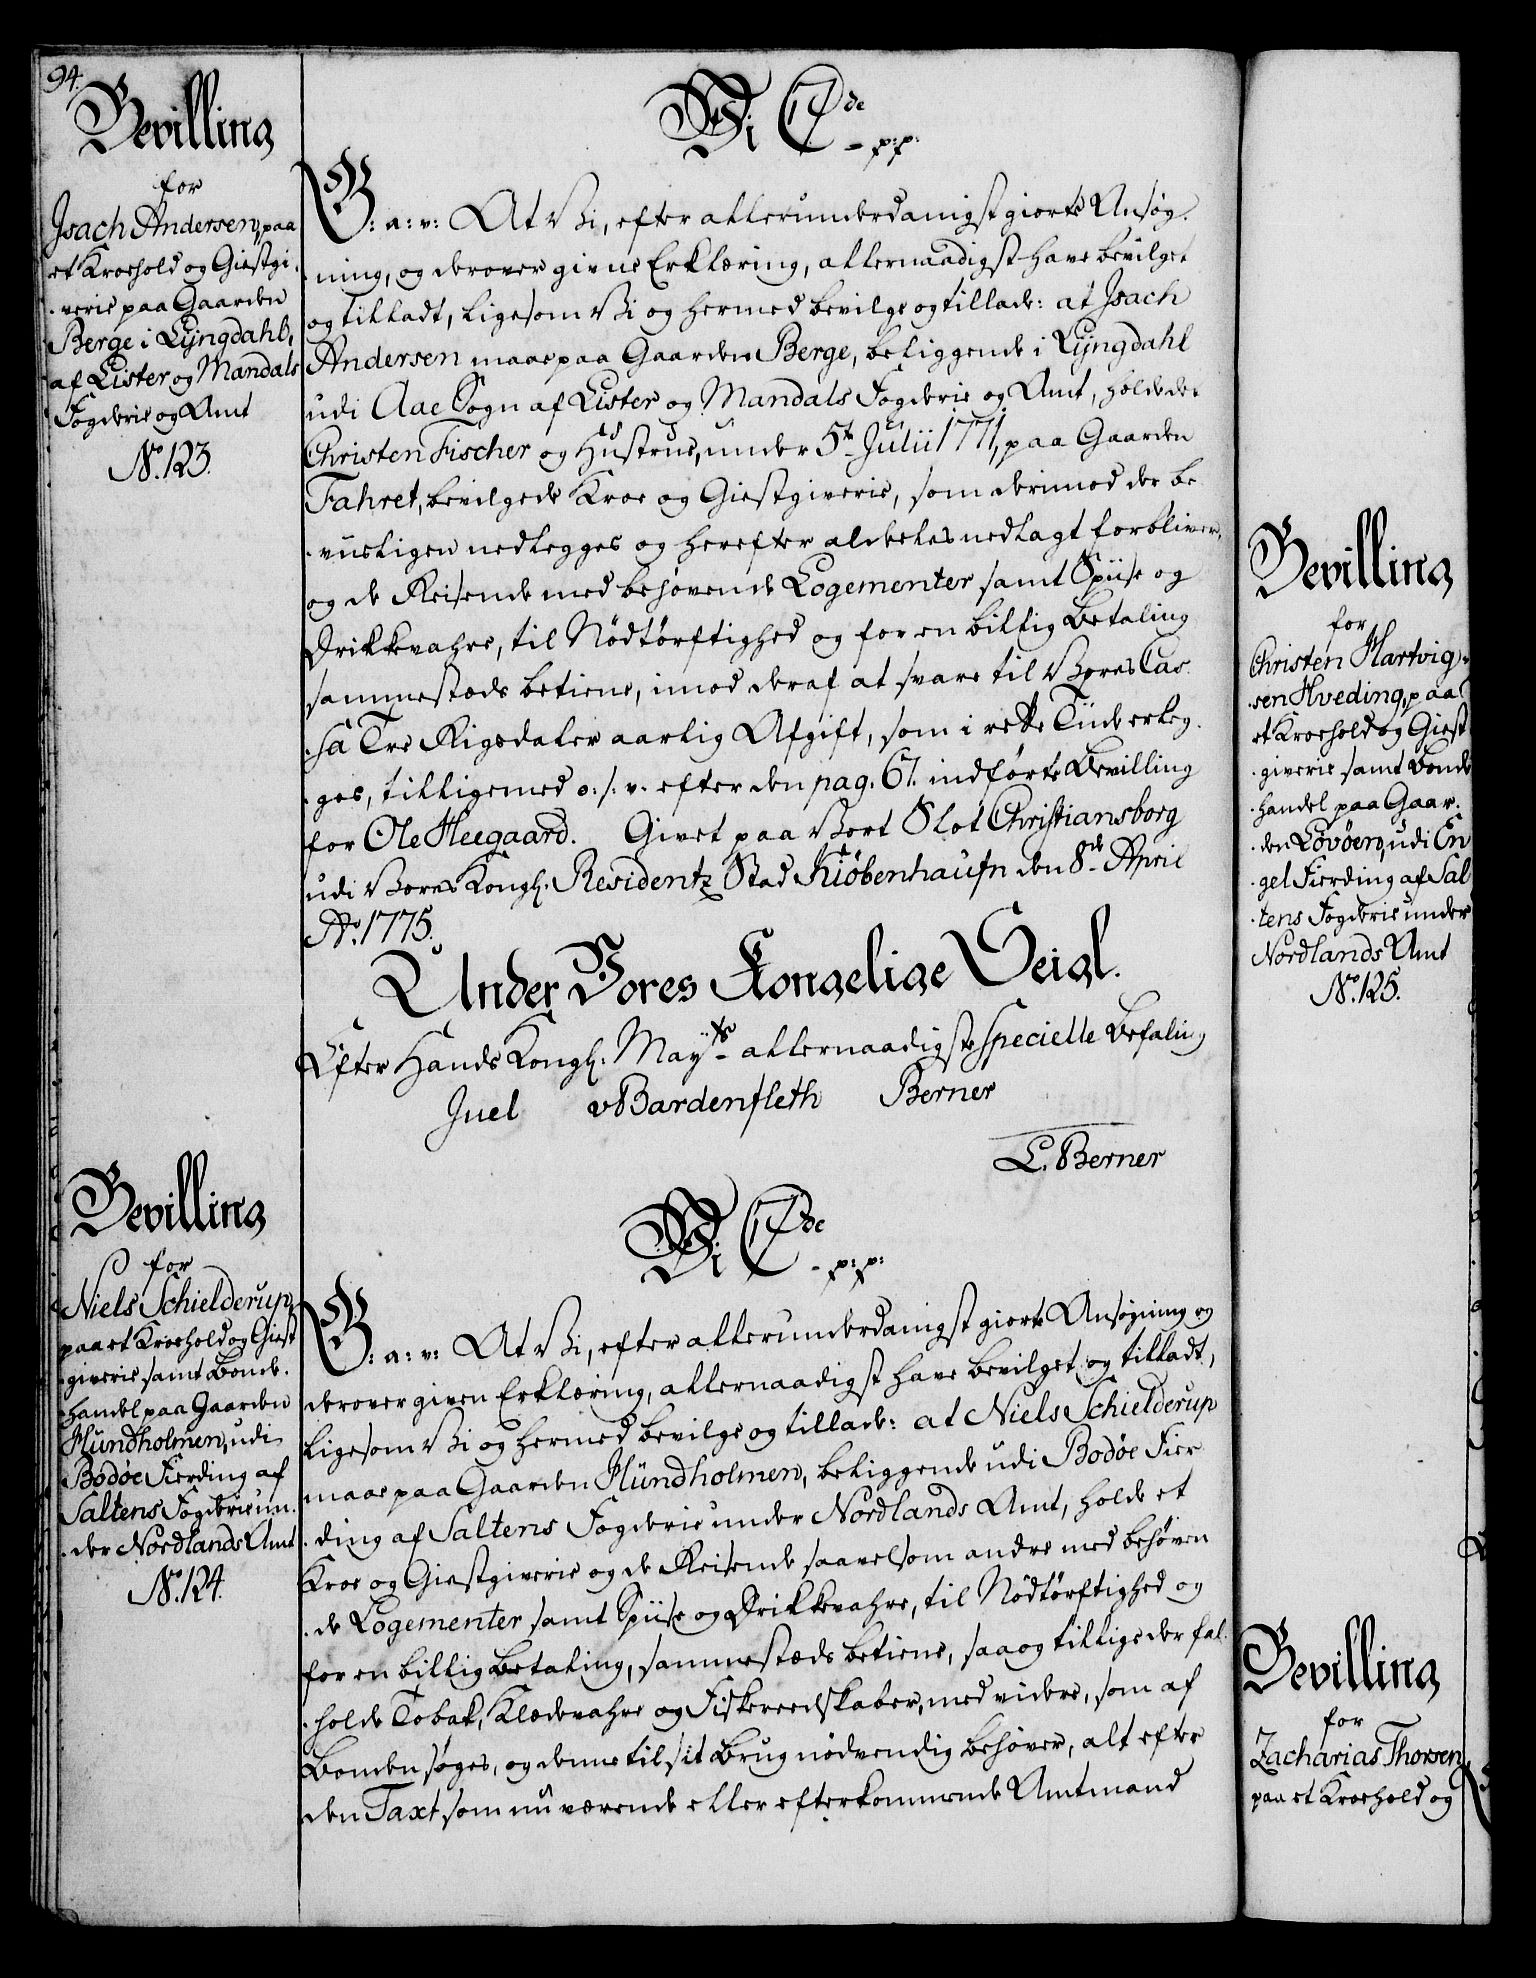 94.
Bevilling
for
Isach Andersen, paa
et Kroehold og Giestgi-
-verie paa Gaarden
Berge i Lyngdahl,
af Lister og Mandals
Fogderie og Amt
No. 123.
Vi C 7de
- p:p:
G: a: v: At Vi, efter allerunderdanigst giorte Ansøg-
-ning, og derover givne Erklæring, allernaadigst have bevilget
og tilladt, ligesom Vi og hermed bevilge og tillade: at Isach
Andersen maae paa Gaarden Berge, beliggende i Lyngdahl
udi Aae Sogn af Lister og Mandals Fogderie og Amt, holde det
Christen Fischer og Hustrue, under 5te Julii 1771, paa Gaarden
Fahret, bevilgede Kroe og Giestgiverie, som derimod der be-
-viisligen nedlegges og herefter aldeles nedlagt forbliver,
og de Reisende med behøvende Logementer samt Spiise og
Drikkevahre, til Nödtørftighed og for en billig Betaling
sammestæds betiene, imod deraf at svare til Vores Cas-
-sa Tre Rigsdaler aarlig Afgift, som i rette Tiid erleg-
-ges, tilligemed o: s: v: efter den pag. 67. indførte Bevilling
for Ole Heegaard. Givet paa Vort Slot Christiansborg
udi Vores Kongl: Residentz Stad Kiøbenhaufn den 8de April
Ao. 1775.
Under Vores Kongelige Seigl.
Efter Hands Kongl: Mayts allernaadigste specielle Befaling
Juel vBardenfleth Berner
L. Berner
Bevilling
for
Niels Schielderup,
paa et Kroehold og Giest-
-giverie samt Bonde-
-handel paa Gaarden
Hündholmen, udi
Bodøe Fierding af
Saltens Fogderie un-
-der Nordlands Amt
No. 124.
Vi C 7de
- p:p:
G: a: v: At Vi, efter allerunderdanigst giorte Ansøgning og
derover given Erklæring, allernaadigst have bevilget og tilladt,
ligesom Vi og hermed bevilge og tillade: at Niels Schielderup
maae paa Gaarden Hündholmen, beliggende udi Bodøe Fier-
-ding af Saltens Fogderie under Nordlands Amt, holde et
Kroe og Giestgiverie og de Reisende saavelsom andre med behøven-
-de Logementer samt Spiise og Drikkevahre, til Nödtørftighed og
for en billig Betaling, sammestæds betiene, saa og tillige der fal-
-holde Tobak, Klædevahre og Fiskereedskaber, med videre, som af
Bonden søges, og denne til sit Brug nödvendig behøver, alt efter
den Taxt som nu værende eller efterkommende Amtmand
Bevilling
for
Christen Hartvig-
-sen Hveding, paa
et Kroehold og Giest-
-giverie samt Bonde-
-handel paa Gaar-
-den Lövöen, udi En-
-gel Fierding af Sal-
-tens Fogderie under
Nordlands Amt
No. 125.
Bevilling
for
Zacharias Thorsen,
paa et Kroehold og